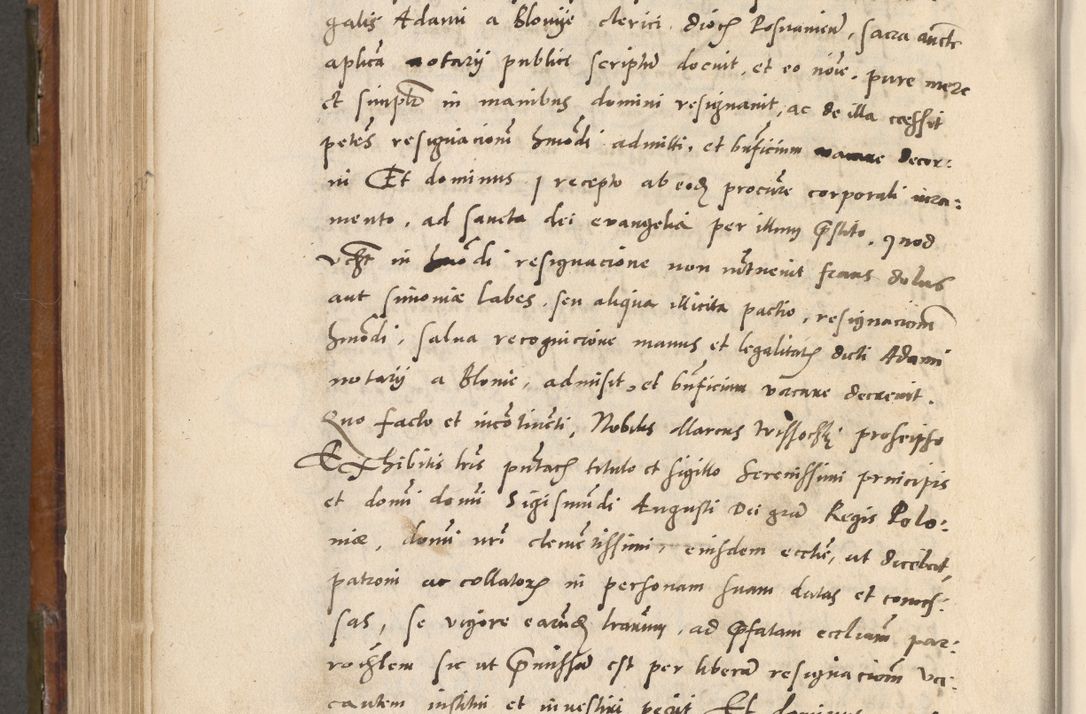 galis Adami a Blonye clerici dioc Posnanien, sacra aucte
aplica notarij publici scriptu docuit, et eo noie, pure mere
et simplr in manibus domini resignauit, ac de illa cessit
petes resignacionem hmodi admitti, et bnficium vacare decer:
ni Et dominus j recepto ab eodem procure corporali iura:
mento, ad sancta dei evangelia per illum prestito, quod
in hmodi resignacione non interuenit fraus dolus
aut simoniæ labes, seu aliqua illicita pactio, resignacionem
hmodi, salua recognicione manus et legalitatis dicti Adami
notarij a Blonie, admisit, et bnficium vacare decreuit.
Quo facto et incontinenti, Nobilis Marcus Wissoczki pro se ipso
Exhibitis lris pntach titulo et sigillo Serenissimi principis
et domi domi Sigismundi Augusti Dei gra Regis Polo:
niæ, domi nri clementissimi, eiusdem ecctie, ut dicebat,
patroni ac collatoris in personam suam datas et conces:
sas, se vigore earundem lrarum, ad prefatam eccliam par:
rochlem sic ut premissum est per liberam resignacionem va:
cantem institui et inuestiri petijt Et dominus